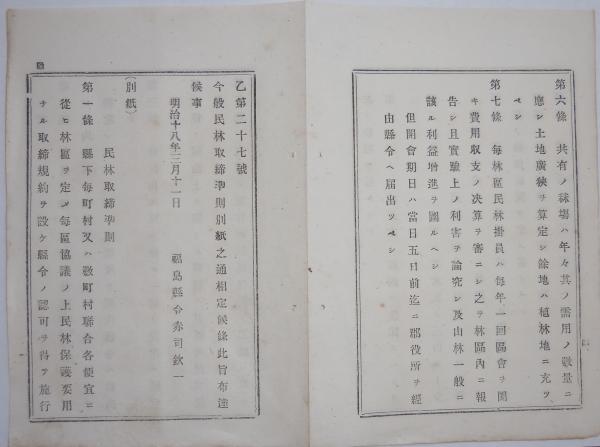 第六條　共有ノ秣場ハ年々其ノ需用ノ數量ニ
應シ土地廣狹ヲ算定シ餘地ハ植林地ニ充ツ
ベシ
第七條　每林區民林掛員ハ每年一回區會ヲ開
キ費用收支ノ決算ヲ審ニシ之ヲ林區內ニ報
告シ且實驗上ノ利害ヲ論究シ及山林一般ニ
該ル利益增進ヲ圖ルヘシ
但開會期日ハ當日五日前迄ニ郡役所ヲ經
由縣令ヘ屆出ツベシ
乙第二十七號
今般民林取締準則別紙之通相定候條此旨布達
候事
明治十八年三月十一日　福島縣令赤司欽一
（別紙）
民林取締準則
第一條　縣下每町村又ハ數町村聯合各便宜ニ
從ヒ林區ヲ定メ每區協議ノ上民林保護要用
ナル取締規約ヲ設ケ縣令ノ認可ヲ得テ施行